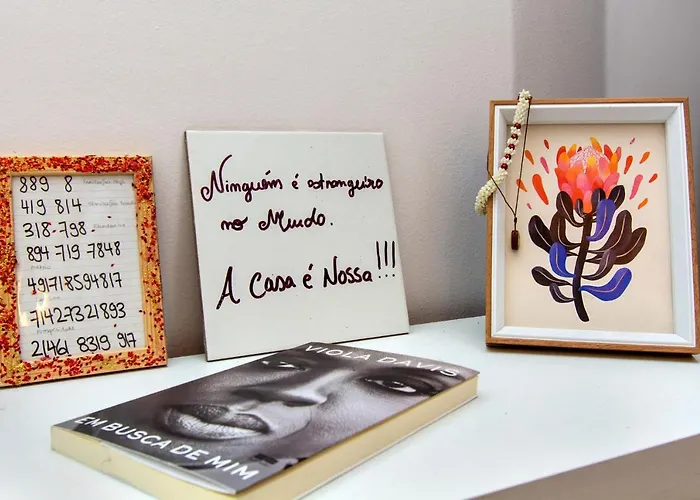 889 8
419 814
318-798
894 719 7848
4917185 94817
71427321893
21461 8319 917
Ninguém é estrangeiro
no Mundo.
A Casa é Nossa!!!
VIOLA DAVIS
EM BUSCA DE MIM